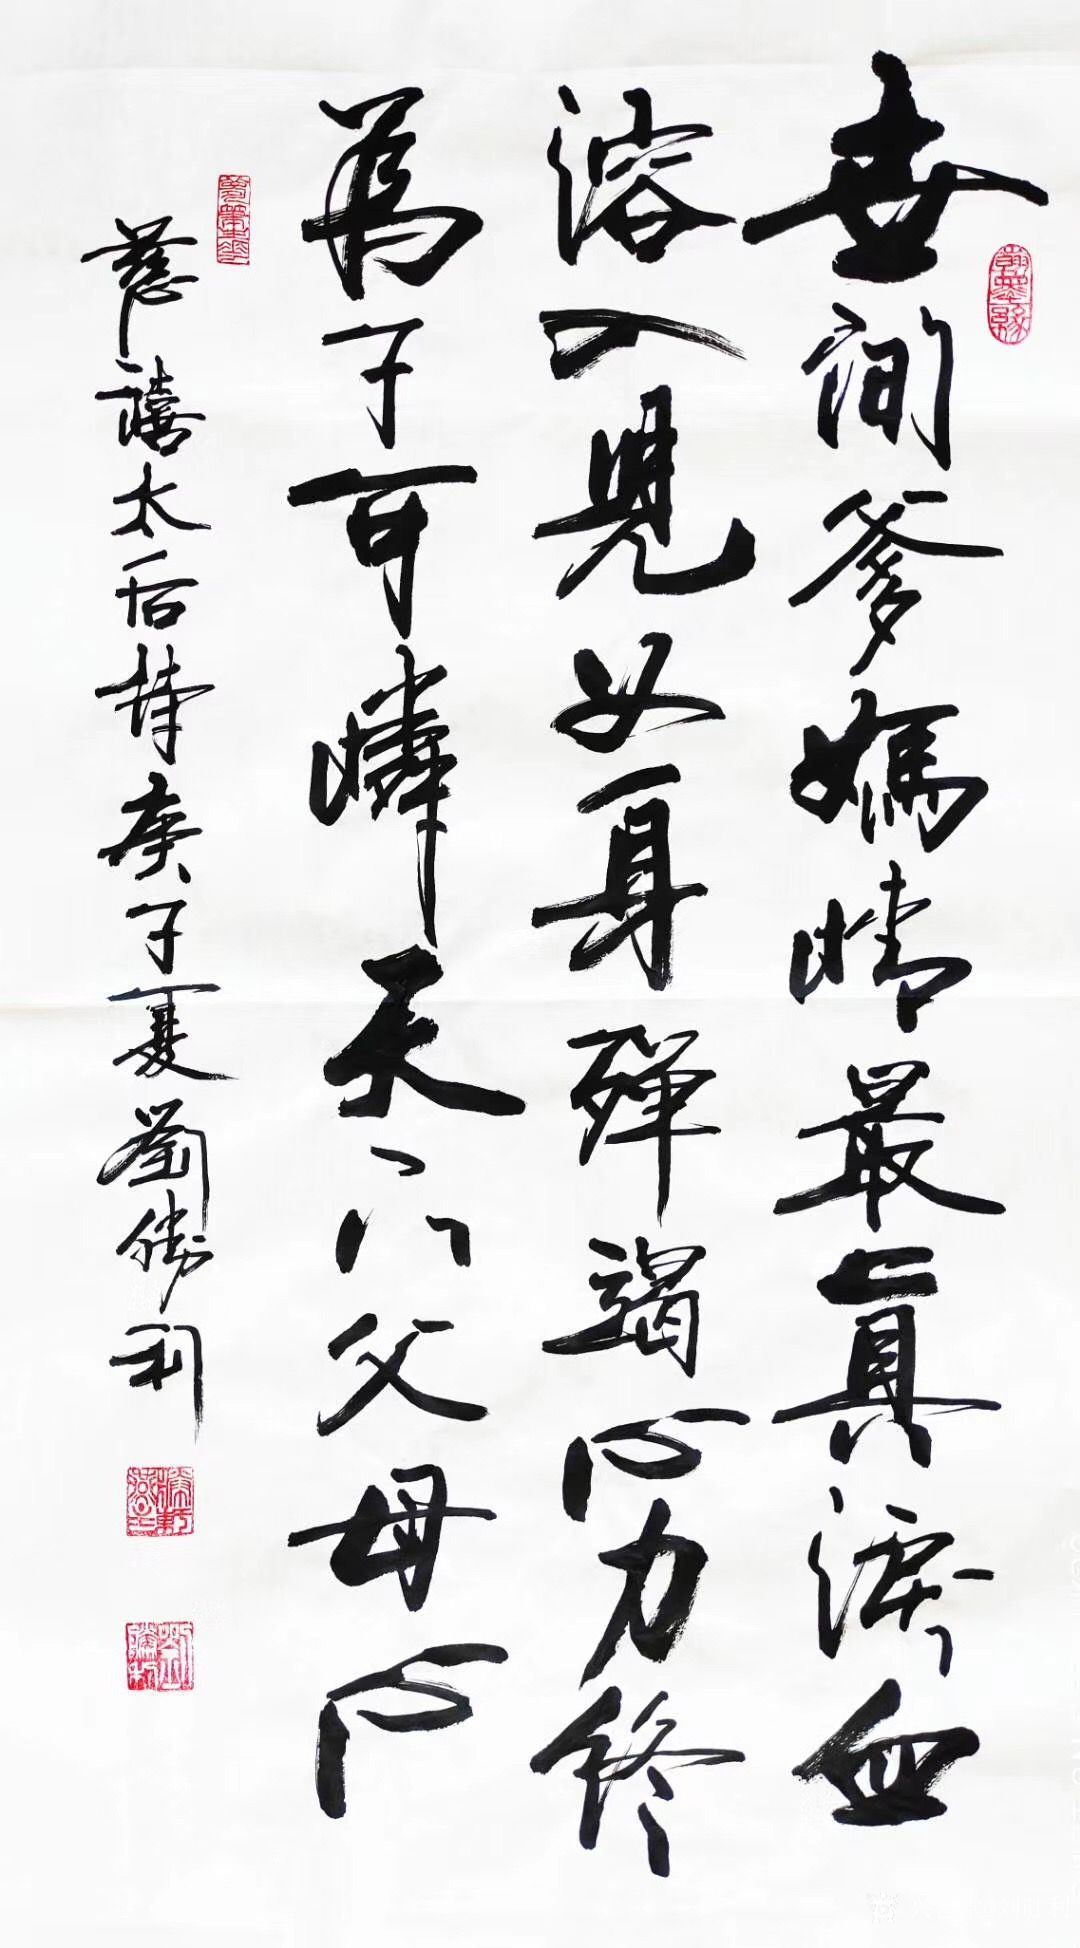 翰墨緣
世間爹媽情最真淚血
溶入兒女身殫竭心力終
為子可憐天下父母心
慈禧太后詩庚子夏劉勝利
劉勝利